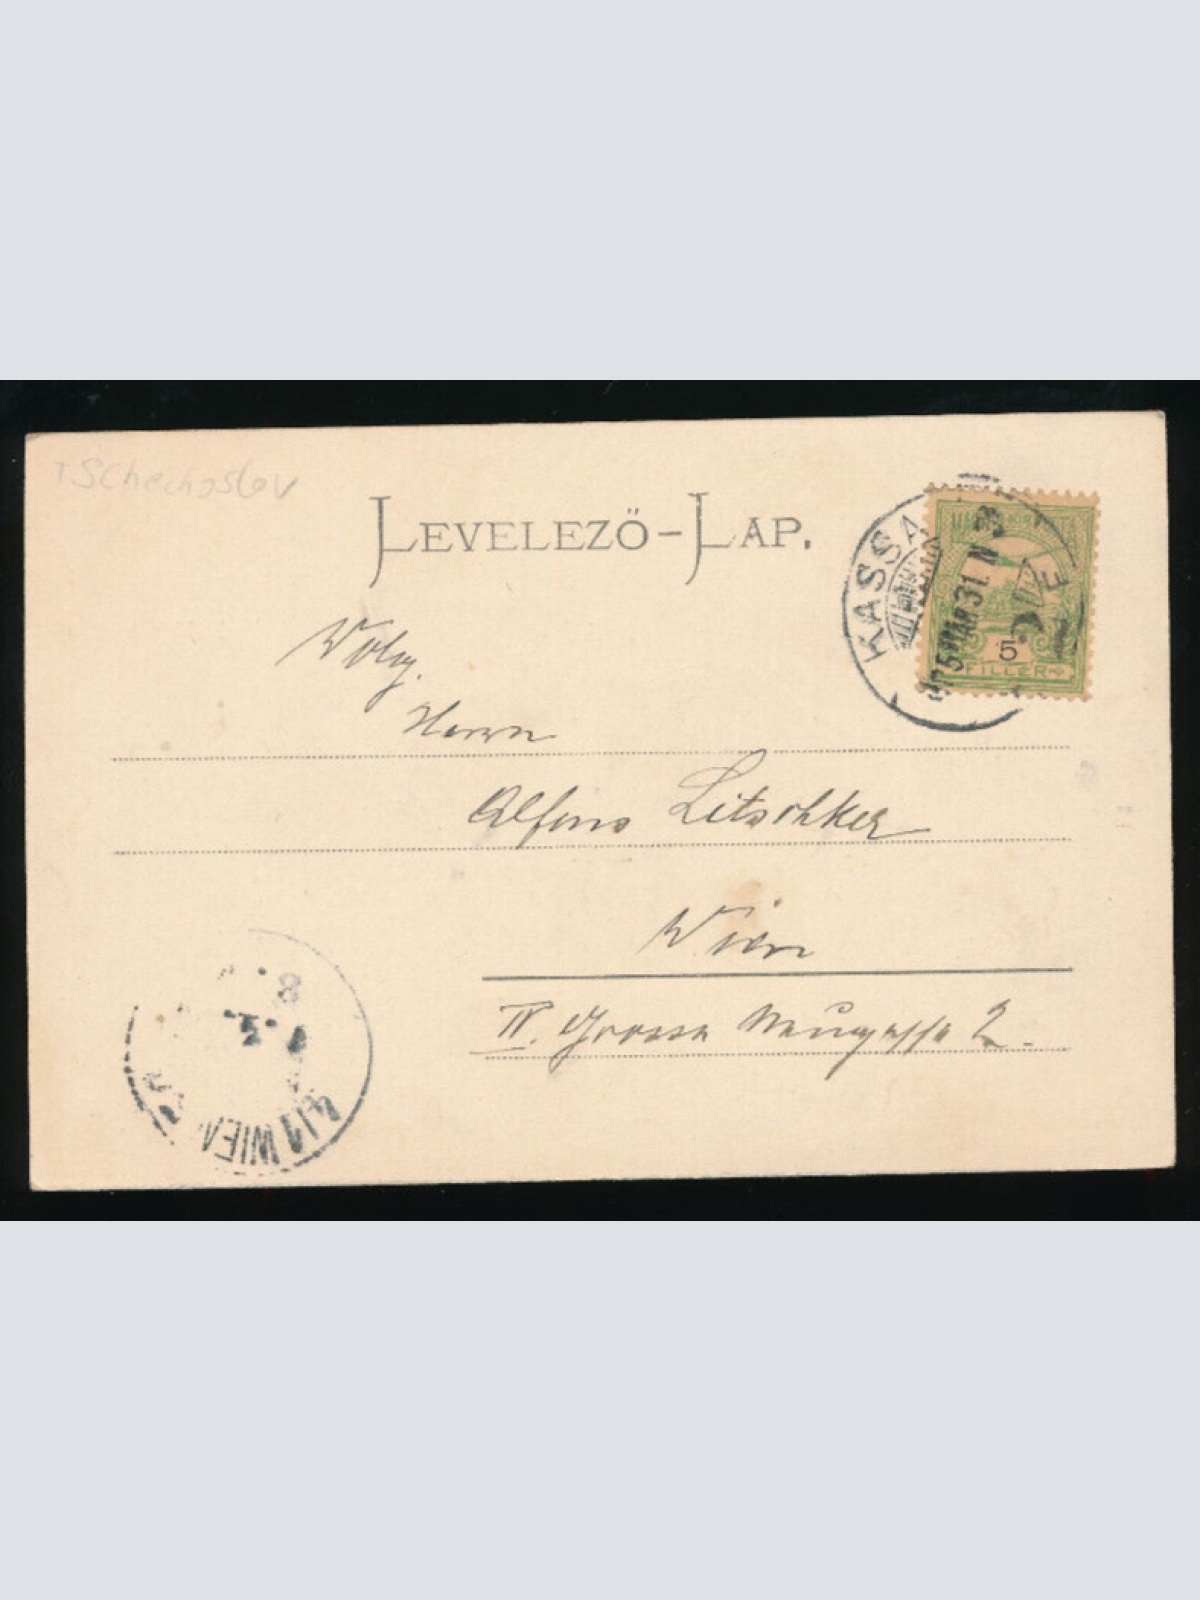 Tschechoslov
LEVELEZŐ-LAP.
KASSA
905 MÁR 31. N 3
5
FILLÉR
Herrn
Alfons Litschker
Wien
IV. Grosse Neugasse 2.
8
4/1 WIEN